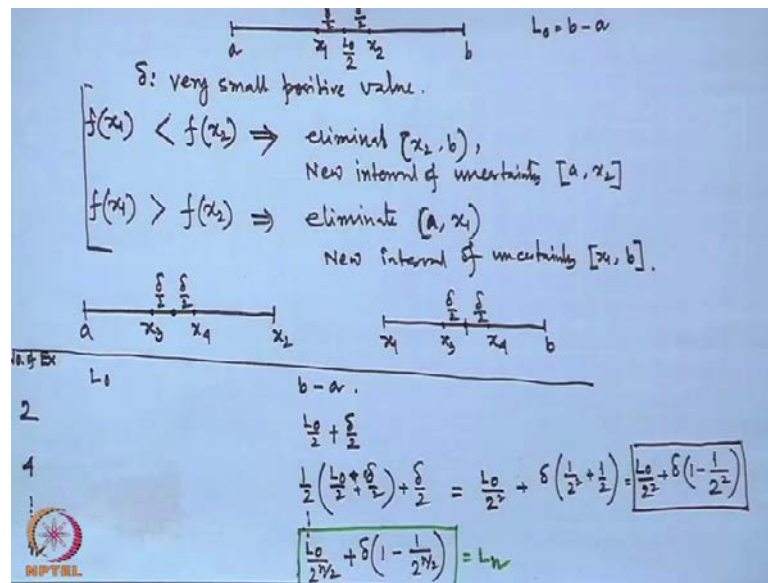 δ/2 δ/2
a x₁ L₀/2 x₂ b L₀ = b - a
δ: very small positive value.
f(x₁) < f(x₂) ⇒ eliminat (x₂, b),
New interval of uncertainty [a, x₂]
f(x₁) > f(x₂) ⇒ eliminate [a, x₁)
New interval of uncertainty [x₁, b].
δ/2 δ/2 δ/2 δ/2
a x₃ x₄ x₂ x₁ x₃ x₄ b
No. of Ex
L₀ b - a.
2 L₀/2 + δ/2
4 1/2 (L₀/2 + δ/2) + δ/2 = L₀/2² + δ(1/2² + 1/2) = L₀/2² + δ(1 - 1/2²)
n L₀/2^(n/2) + δ(1 - 1/2^(n/2)) = Lₙ
NPTEL